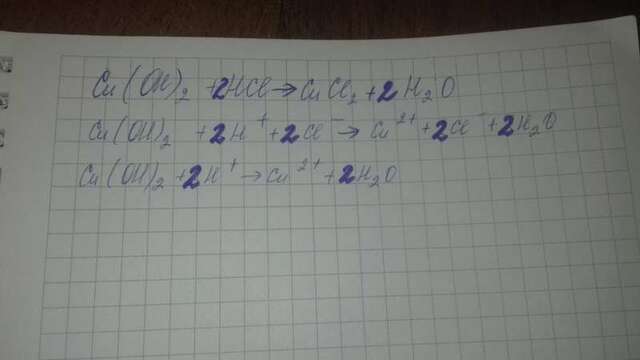 Cu(OH)₂ + 2HCl → CuCl₂ + 2H₂O
Cu(OH)₂ + 2H⁺ + 2Cl⁻ → Cu²⁺ + 2Cl⁻ + 2H₂O
Cu(OH)₂ + 2H⁺ → Cu²⁺ + 2H₂O